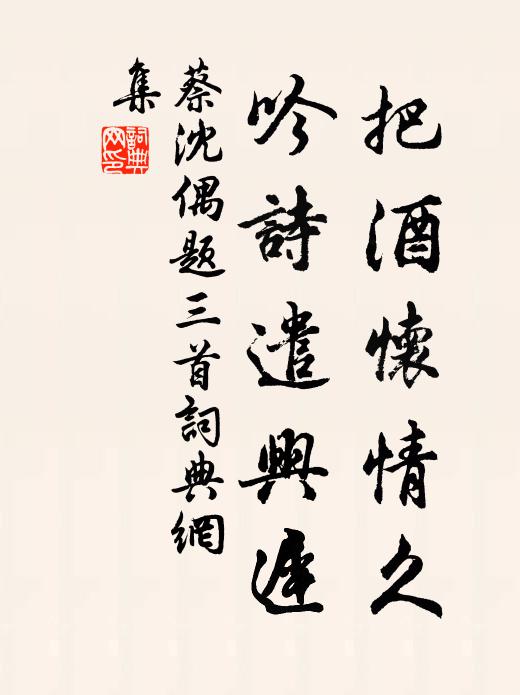 把酒懷情久
吟詩遣興遲
蔡沈偶題三首詞典網
集
詞典網印